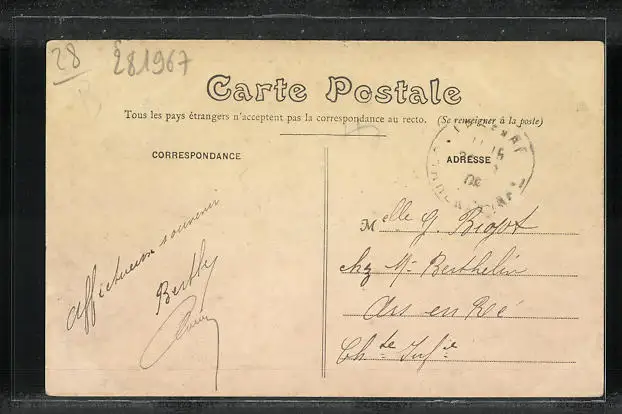 28
281967
Carte Postale
Tous les pays étrangers n'acceptent pas la correspondance au recto. (Se renseigner à la poste)
CORRESPONDANCE
ADRESSE
Affectueux souvenir
Berthe
Melle G. Bigot
chz Mr Berthelin
Ars en Ré
Chte Infie